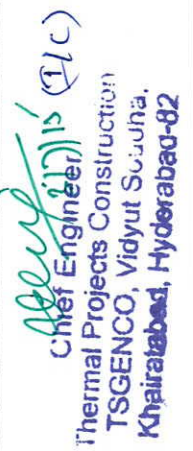 Chief Engineer (I/C)
Thermal Projects Construction
TSGENCO, Vidyut Soudha,
Khairatabad, Hyderabad-82